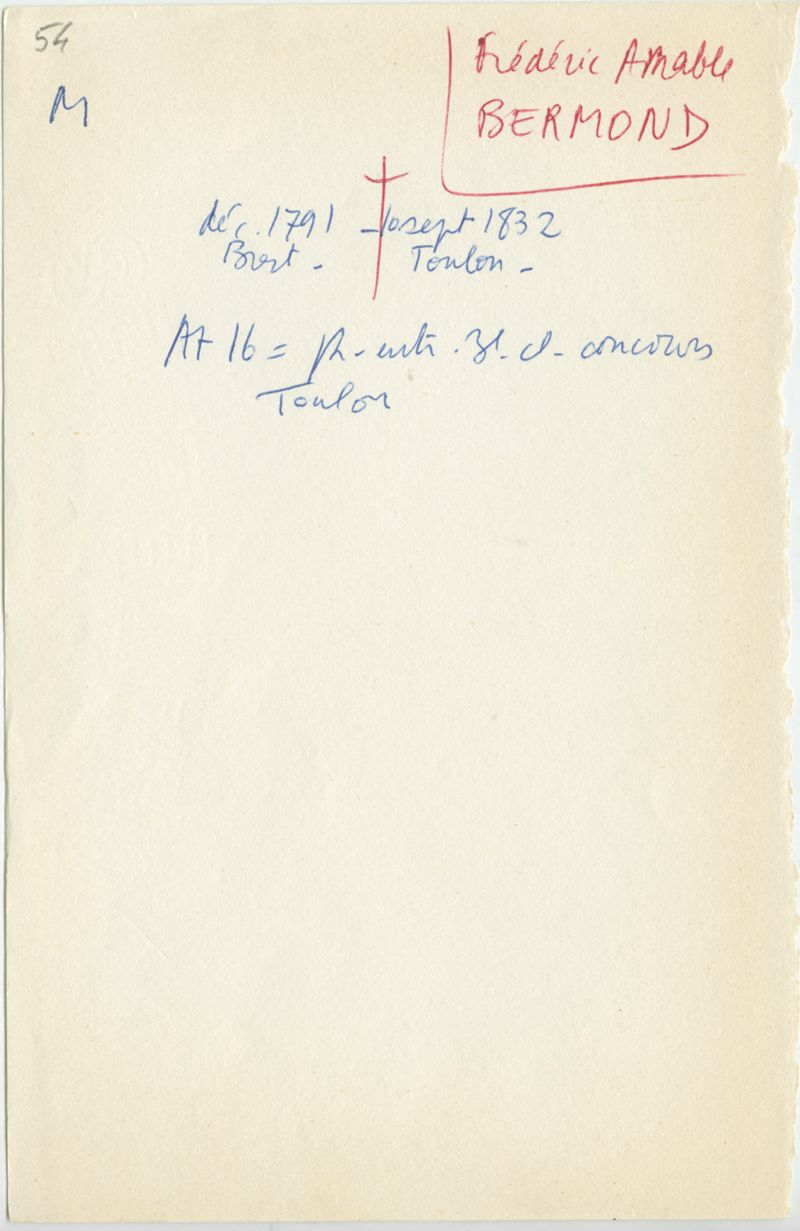 54
M
Frédéric Amable
BERMOND
déc. 1791 - 10 sept 1832
Brest - Toulon -
At 16 = ph - entr. 3e cl - concours
Toulon